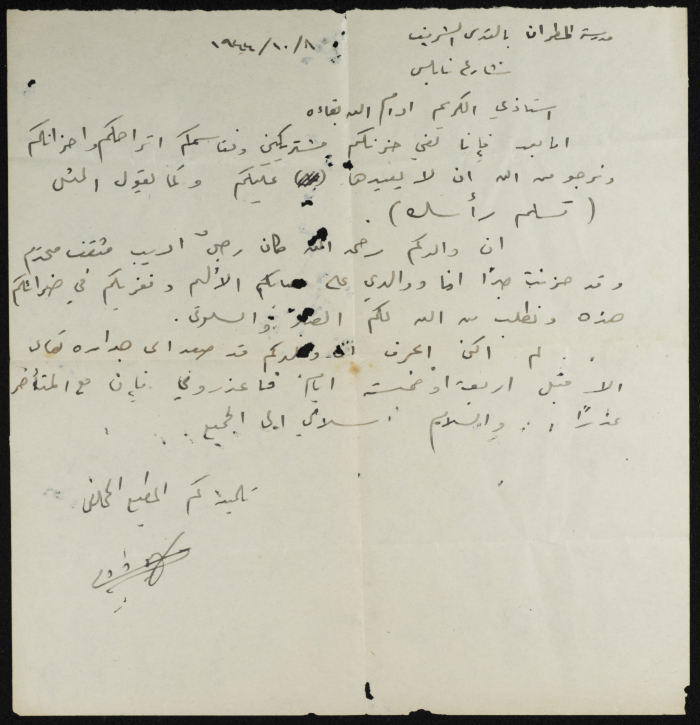 مدرسة المطران بالقدس الشريف
١٩٤٤/١٠/٨
شارع نابلس
استاذي الكريم ادام الله بقاءه
اما بعد فإننا في حزنكم مشتركين ونقاسمكم اتراحكم واحزانكم
ونرجو من الله ان لا يعيدها عليكم وكما يقول المثل
( تسلم رأسك ) .
ان والدكم رحمه الله كان رجل اديب مثقف محترم
وقد حزنت جدًا انا ووالدي على مصابكم الأليم ونعزيكم في
هذه ونطلب من الله لكم الصبر والسلوى .
لم اكن اعرف ان والدكم قد صعد الى جداره تعالى
الا قبل اربعة او خمسة ايام فاعذروني فإن مع المتأخر
عذرًا . والسلام . سلامي الى الجميع .
تلميذكم المطيع المخلص